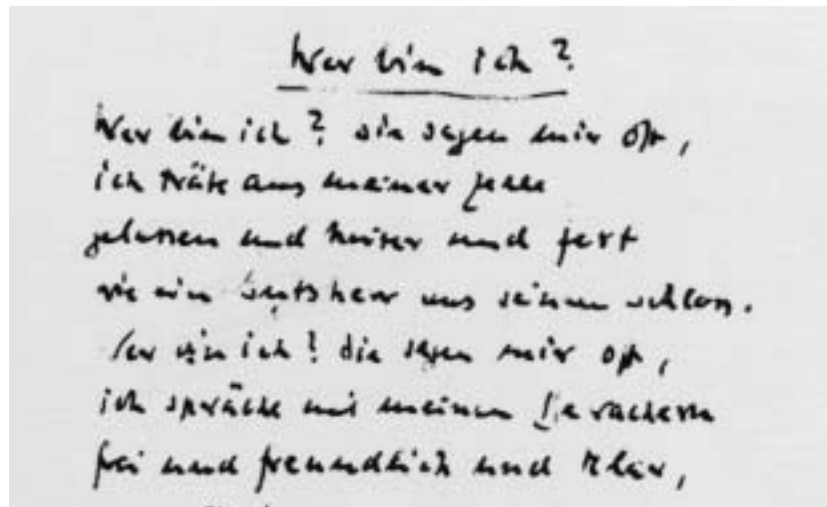 Wer bin ich?
Wer bin ich? Sie sagen mir oft,
ich träte aus meiner Zelle
gelassen und heiter und fest
wie ein Gutsherr aus seinem Schloss.
Wer bin ich? Sie sagen mir oft,
ich spräche mit meinen Bewachern
frei und freundlich und klar,